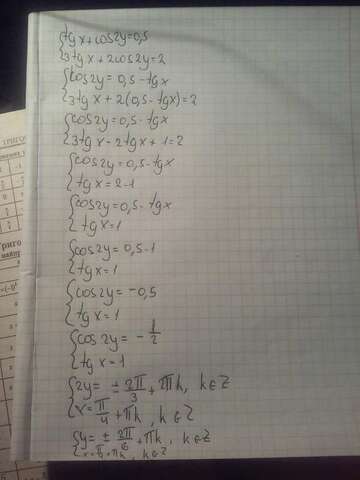 {tg x + cos2y = 0,5
{3tg x + 2cos2y = 2
{cos2y = 0,5 - tgx
{3tgx + 2(0,5 - tgx) = 2
{cos2y = 0,5 - tgx
{3tgx - 2tgx + 1 = 2
{cos2y = 0,5 - tgx
{tgx = 2-1
{cos2y = 0,5 - tgx
{tgx = 1
{cos2y = 0,5 - 1
{tgx = 1
{cos2y = -0,5
{tgx = 1
{cos2y = - 1/2
{tgx = 1
{2y = ± 2π/3 + 2πk, k∈Z
{x = π/4 + πk, k∈Z
{y = ± 2π/6 + πk, k∈Z